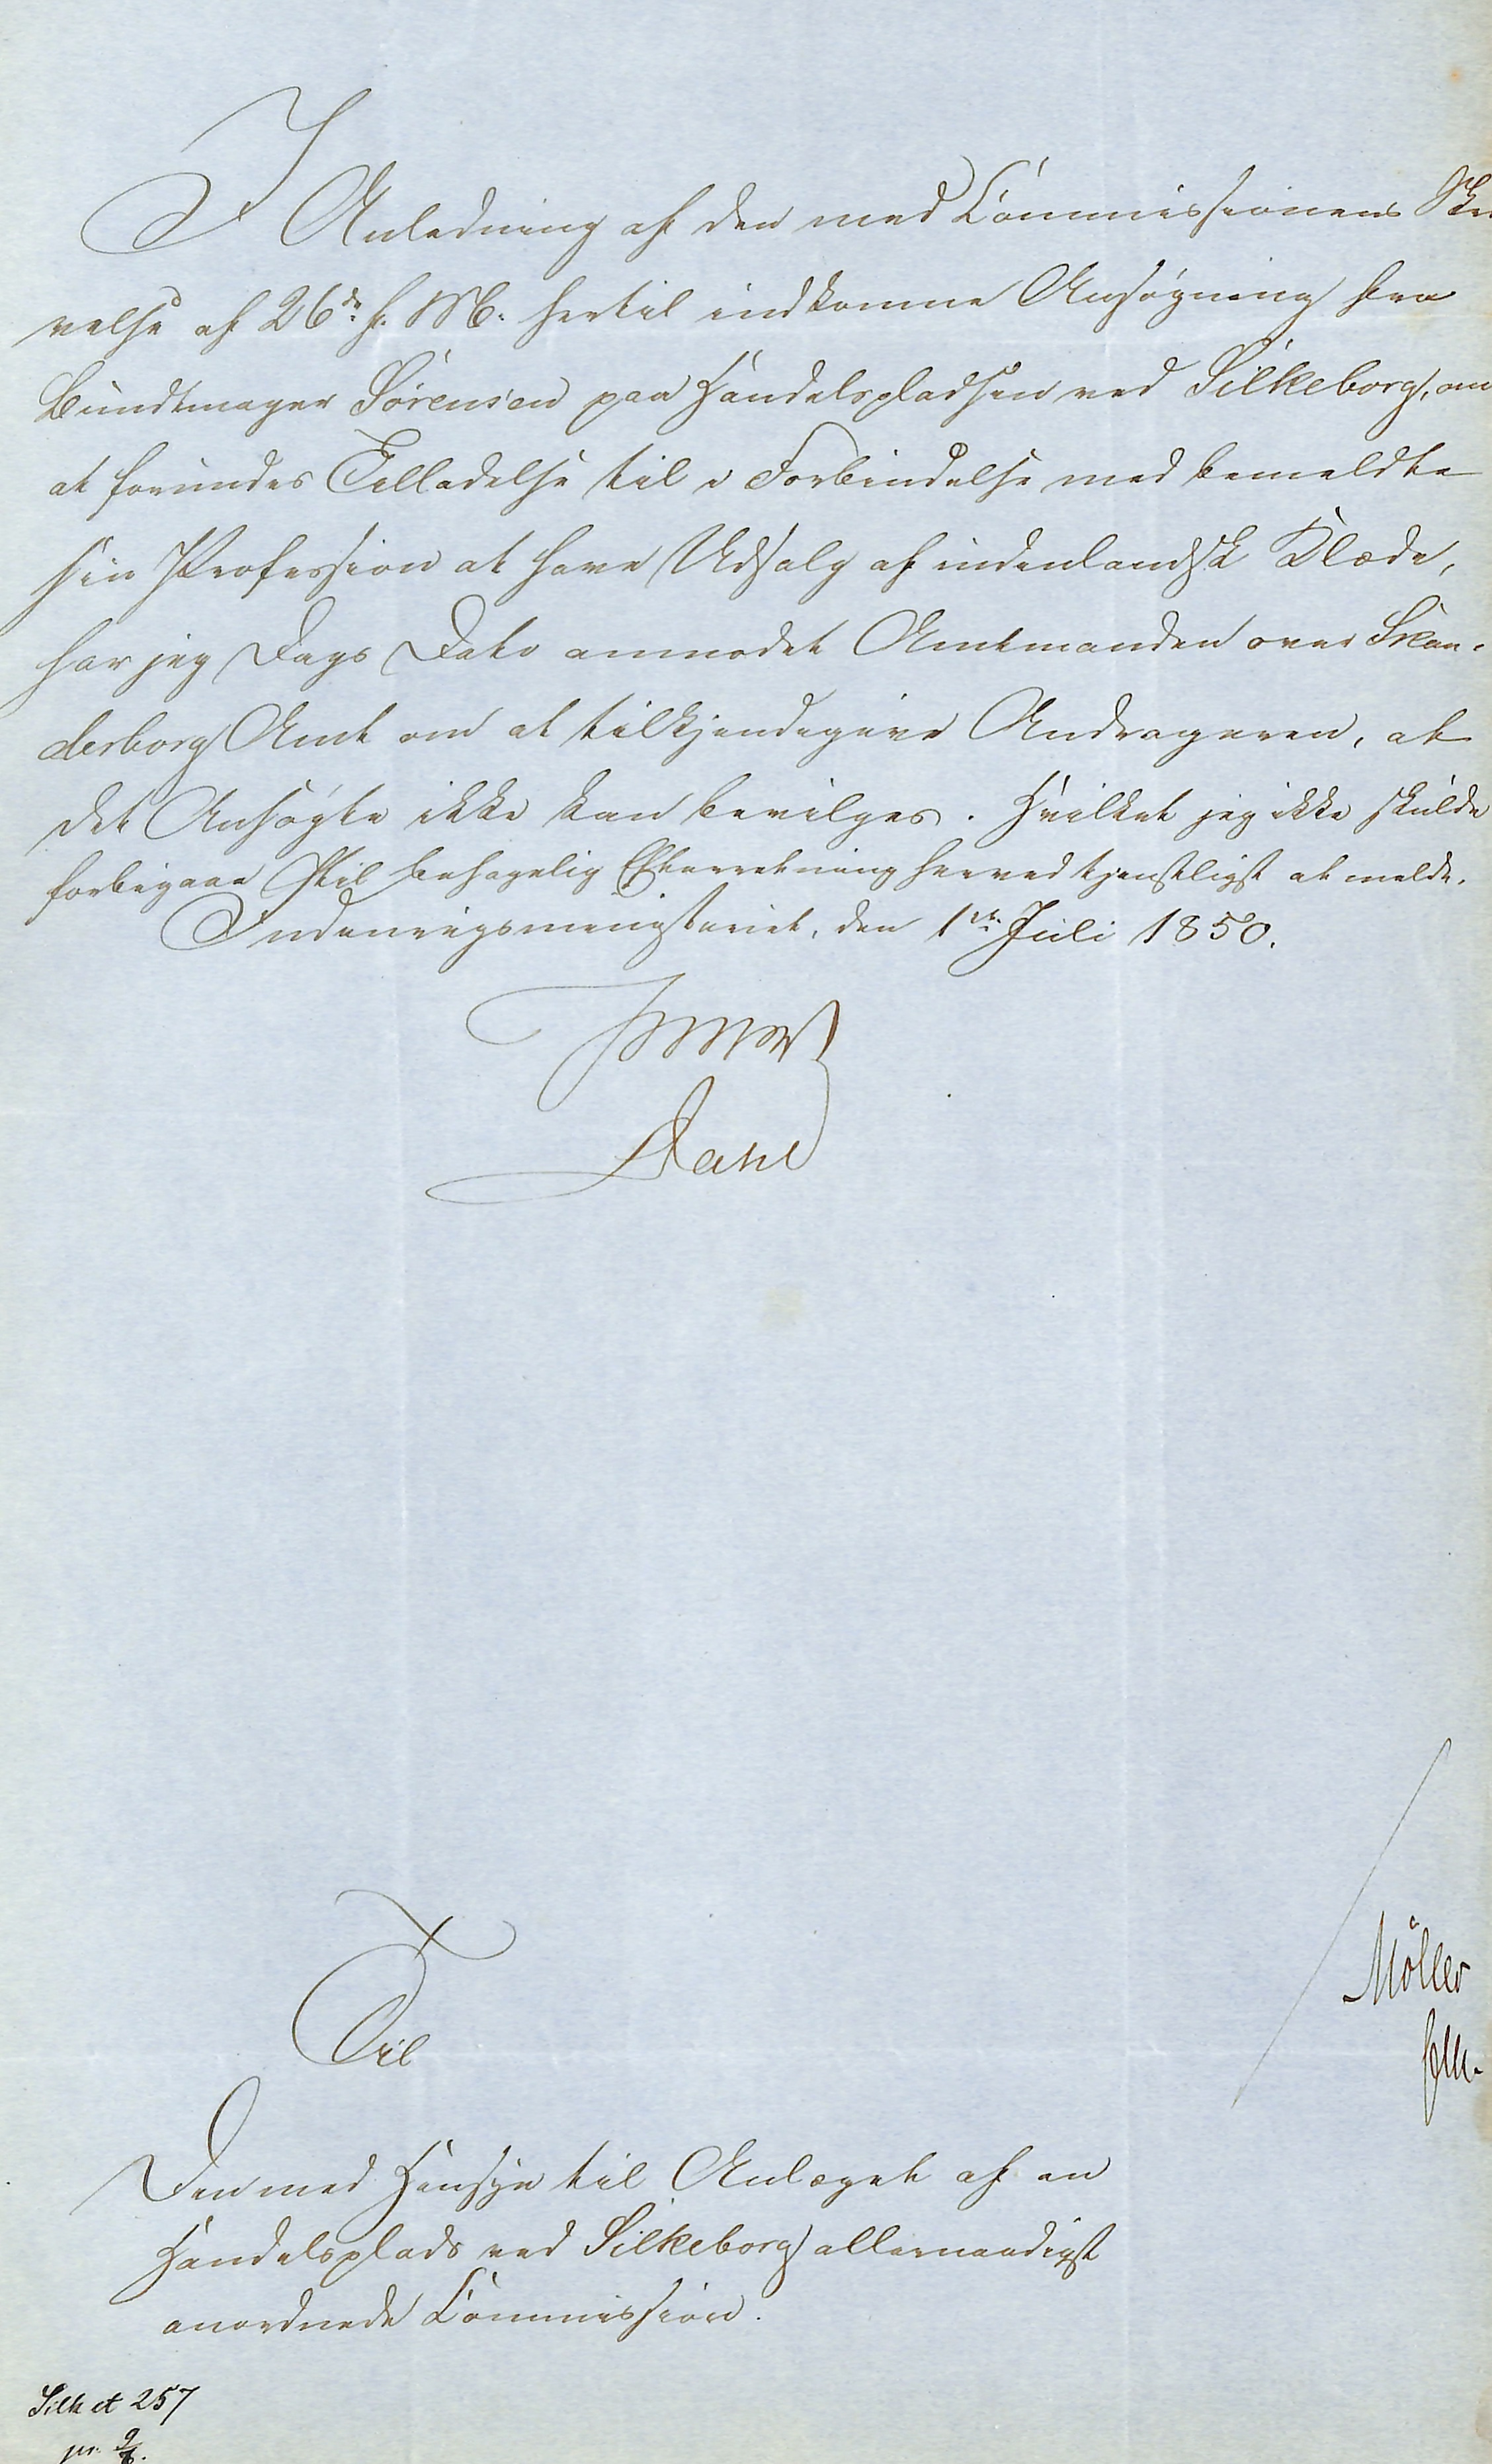 I Anledning af den med Commissionens Skri
velse af 26de f. M. hertil indkomne Ansøgning fra
Bundtmager Sörensen paa Handelspladsen ved Silkeborg, om
at forundes Tilladelse til i Forbindelse med bemeldte
sin Profession at have Udsalg af indenlandsk Klæde,
har jeg Dags Dato anmodet Amtmanden over Skan-
derborg Amt om at tilkjendegive Andrageren, at
det Ansøgte ikke kan bevilges. Hvilket jeg ikke skulde
forbigaae til behagelig Efterretning herved tjenstligst at melde.
Indenrigsministeriet, den 1ste Juli 1850.
Dahl
Til
Den med Hensyn til Anlæget af en
Handelsplads ved Silkeborg allernaadigst
anordnede Commission.
Möller
Silk et 257
pr. 9/7.